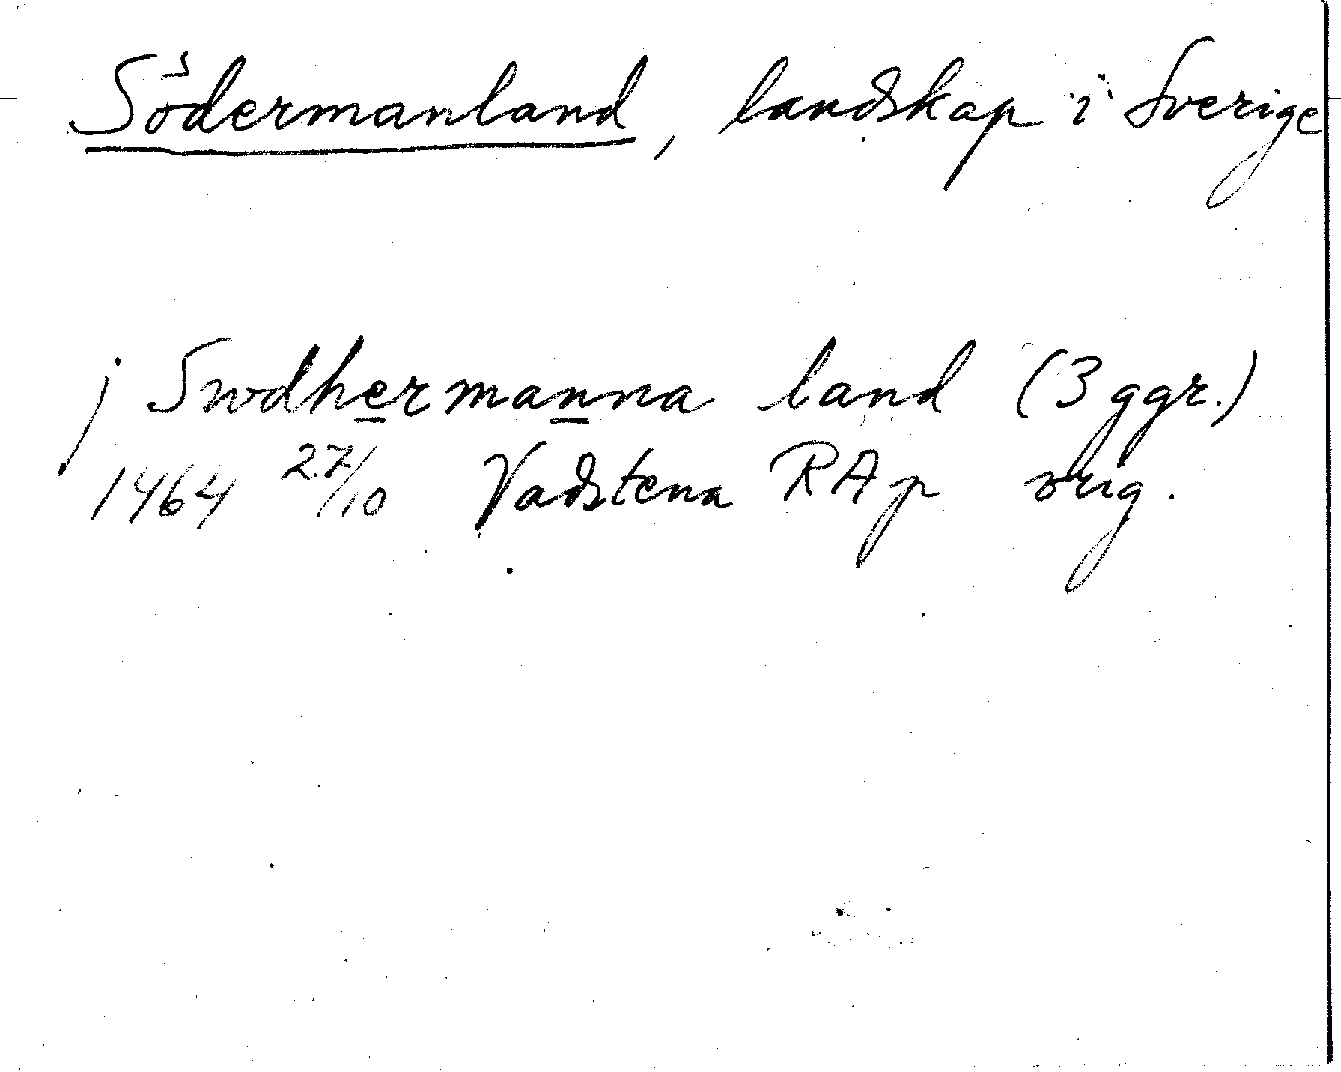 Södermanland, landskap i Sverige
j Swdhermanna land (3 ggr.)
1464 27/10 Vadstena RAp orig.